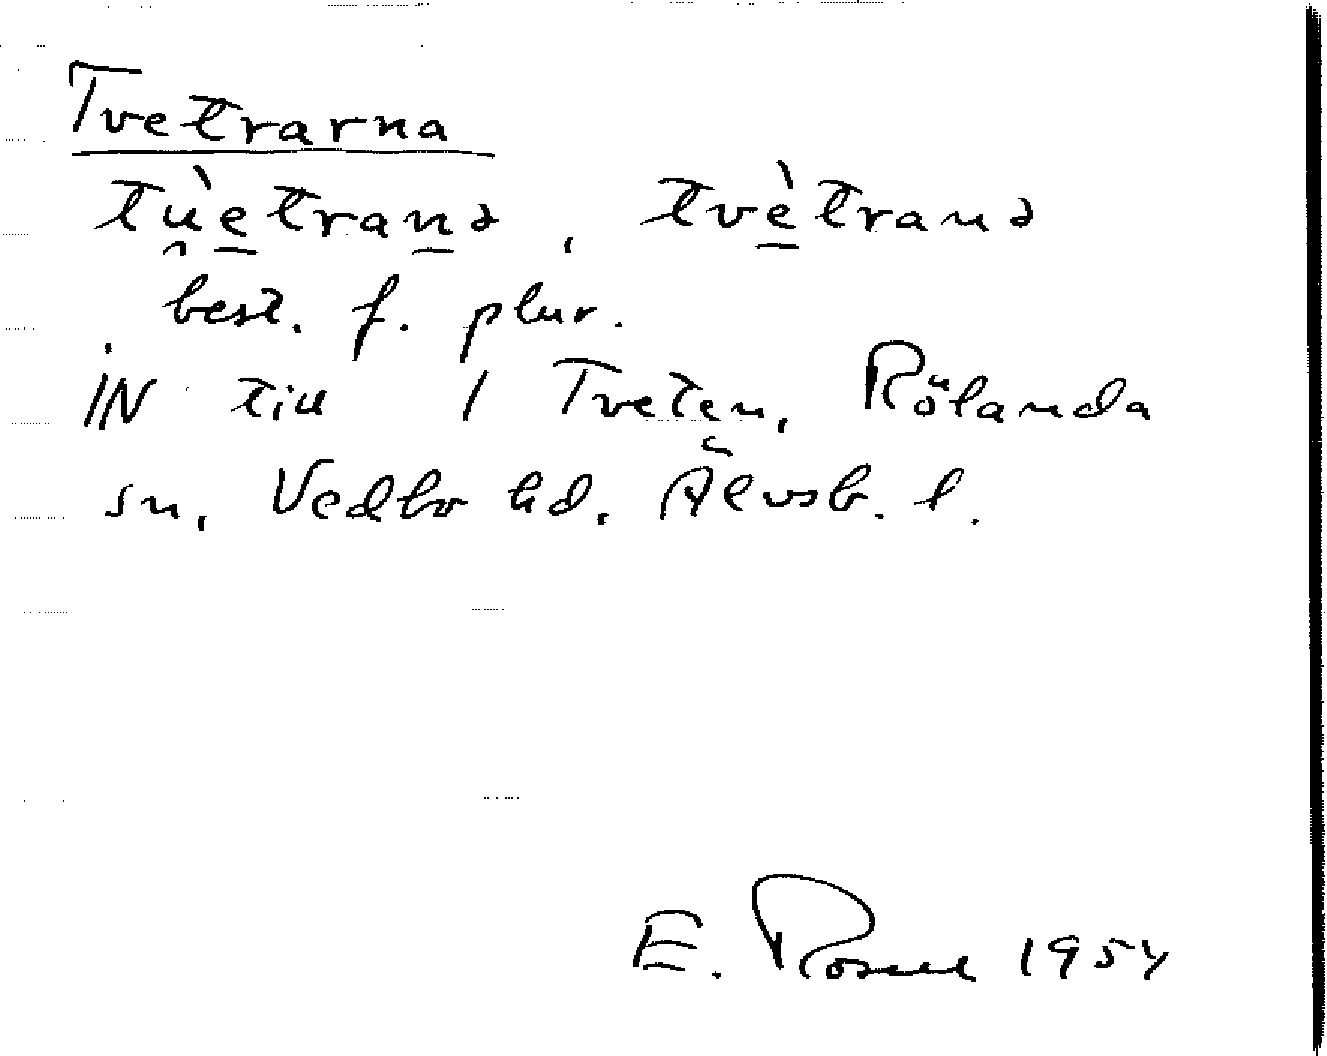 Tvetrarna
tu̯è̠tran̠ə, tvè̠tranə
best. f. plur.
IN till 1 Tveten, Rölanda
sn, Vedbo hd, Älvsb. l.
E. Rosell 1954